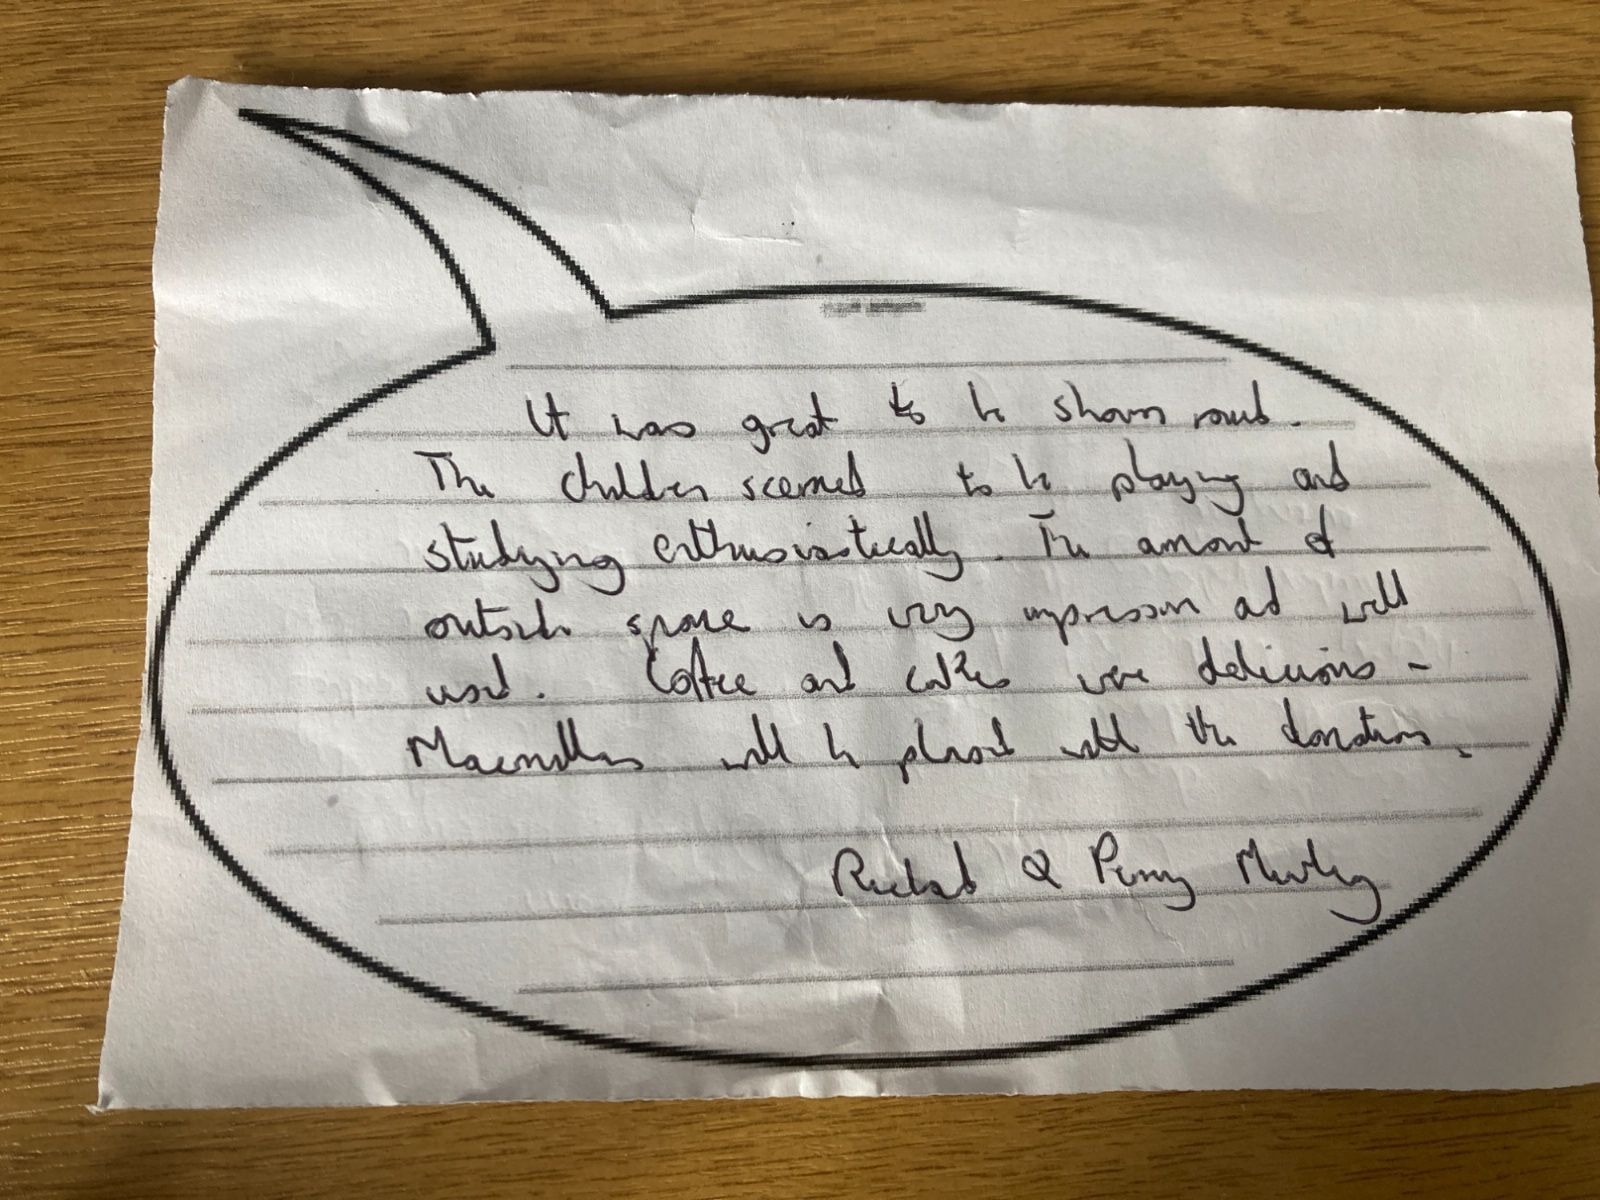 It was great to be shown round.
The children seemed to be playing and
studying enthusiastically. The amount of
outside space is very impressive and well
used. Coffee and cakes were delicious -
Macmillan will be pleased with the donations.
Richard & Penny